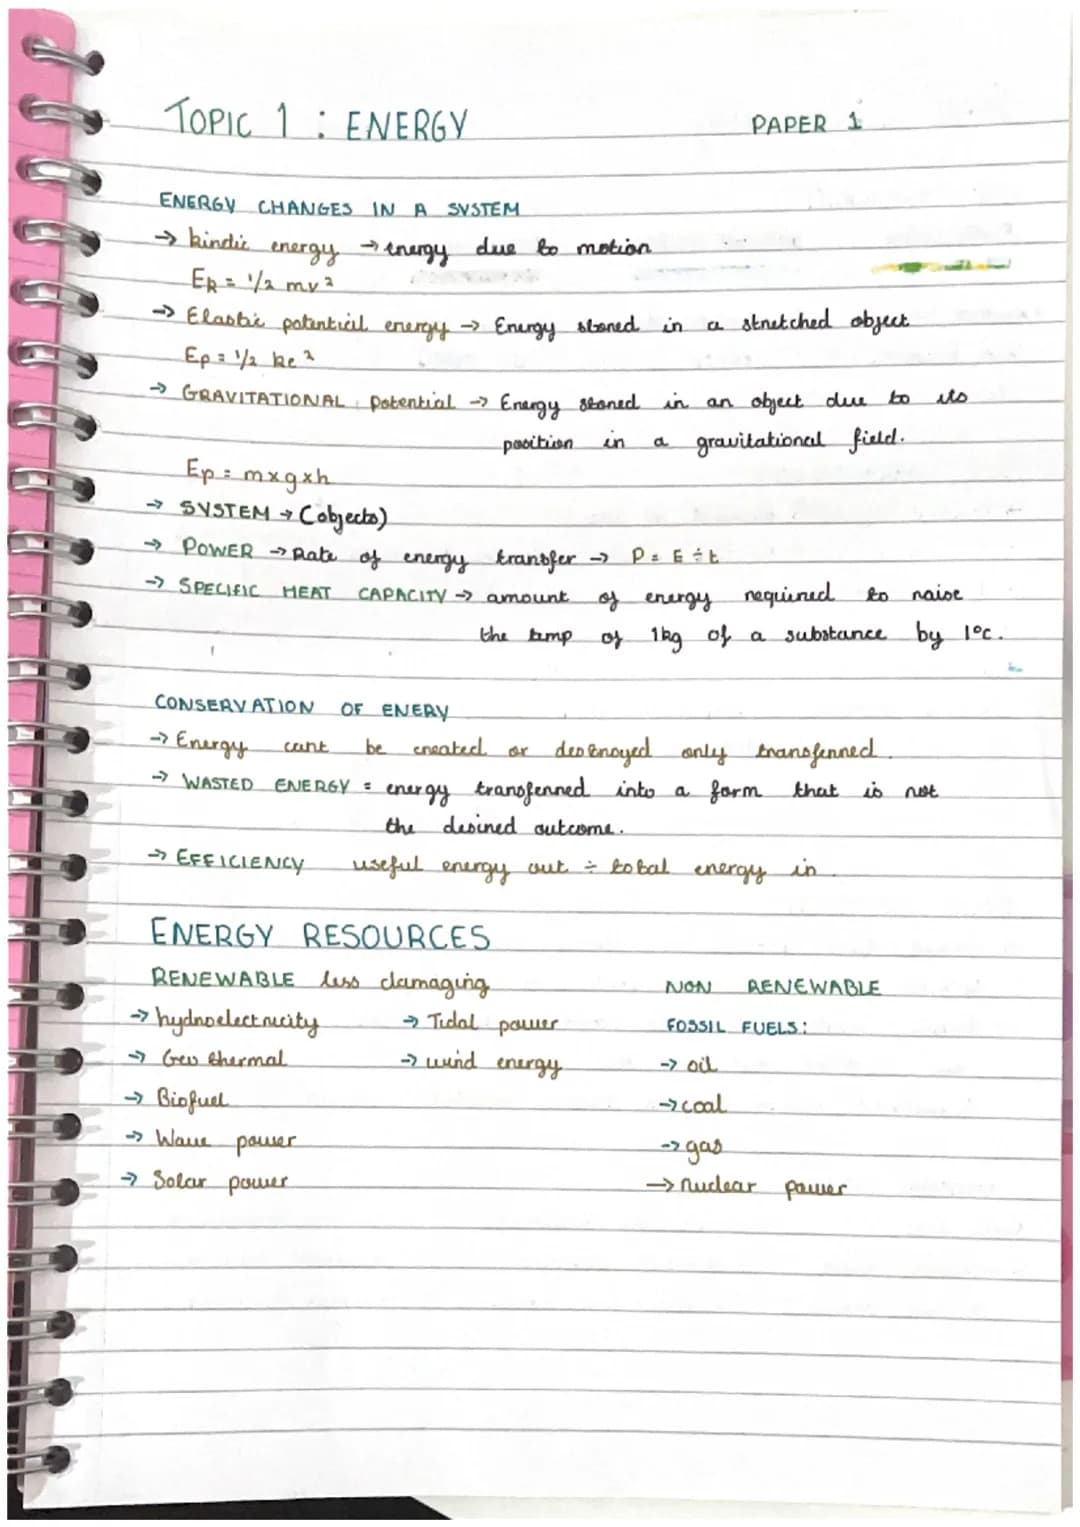 TOPIC 1 : ENERGY PAPER 1
ENERGY CHANGES IN A SYSTEM
→ kinetic energy → energy due to motion
Ek = 1/2 mv²
→ Elastic potential energy → Energy stored in a stretched object
Ep = 1/2 ke²
→ GRAVITATIONAL potential → Energy stored in an object due to its
position in a gravitational field.
Ep = m×g×h
→ SYSTEM → (objects)
→ POWER → Rate of energy transfer → P = E ÷ t
→ SPECIFIC HEAT CAPACITY → amount of energy required to raise
the temp of 1kg of a substance by 1°c.
CONSERVATION OF ENERY
→ Energy cant be created or destroyed only transferred.
→ WASTED ENERGY = energy transferred into a form that is not
the desired outcome.
→ EFFICIENCY useful energy out ÷ total energy in.
ENERGY RESOURCES
RENEWABLE less damaging NON RENEWABLE
→ hydroelectricity → Tidal power FOSSIL FUELS:
→ Geo thermal → wind energy → oil
→ Biofuel → coal
→ Wave power → gas
→ Solar power → nuclear power